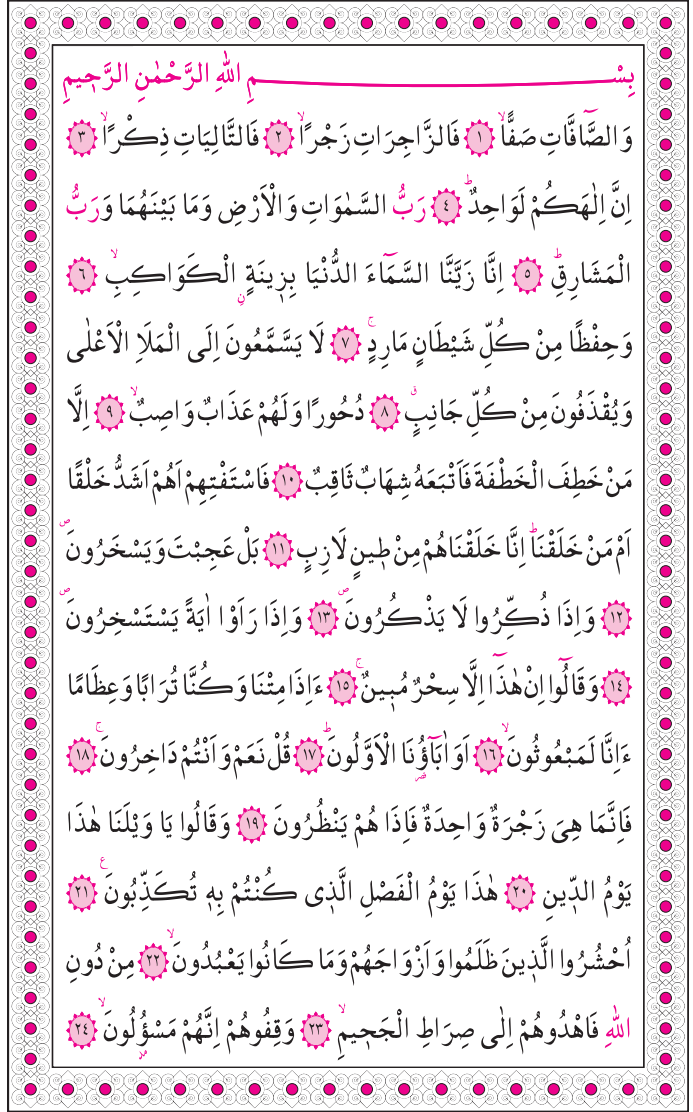 بِسْمِ اللهِ الرَّحْمٰنِ الرَّحٖيمِ
وَالصَّٓافَّاتِ صَفًّاۙ ﴿١﴾ فَالزَّاجِرَاتِ زَجْرًاۙ ﴿٢﴾ فَالتَّالِيَاتِ ذِكْرًاۙ ﴿٣﴾
اِنَّ اِلٰهَكُمْ لَوَاحِدٌؕ ﴿٤﴾ رَبُّ السَّمٰوَاتِ وَالْاَرْضِ وَمَا بَيْنَهُمَا وَرَبُّ
الْمَشَارِقِؕ ﴿٥﴾ اِنَّا زَيَّنَّا السَّمَٓاءَ الدُّنْيَا بِزٖينَةٍۨ الْكَوَاكِبِۙ ﴿٦﴾
وَحِفْظًا مِنْ كُلِّ شَيْطَانٍ مَارِدٍۚ ﴿٧﴾ لَا يَسَّمَّعُونَ اِلَى الْمَلَاِ الْاَعْلٰى
وَيُقْذَفُونَ مِنْ كُلِّ جَانِبٍۗ ﴿٨﴾ دُحُورًا وَلَهُمْ عَذَابٌ وَاصِبٌۙ ﴿٩﴾ اِلَّا
مَنْ خَطِفَ الْخَطْفَةَ فَاَتْبَعَهُ شِهَابٌ ثَاقِبٌ ﴿١٠﴾ فَاسْتَفْتِهِمْ اَهُمْ اَشَدُّ خَلْقًا
اَمْ مَنْ خَلَقْنَاؕ اِنَّا خَلَقْنَاهُمْ مِنْ طٖينٍ لَازِبٍ ﴿١١﴾ بَلْ عَجِبْتَ وَيَسْخَرُونَࣕ
﴿١٢﴾ وَاِذَا ذُكِّرُوا لَا يَذْكُرُونَࣕ ﴿١٣﴾ وَاِذَا رَاَوْا اٰيَةً يَسْتَسْخِرُونَࣕ
﴿١٤﴾ وَقَالُٓوا اِنْ هٰذَٓا اِلَّا سِحْرٌ مُبٖينٌۚ ﴿١٥﴾ ءَاِذَا مِتْنَا وَكُنَّا تُرَابًا وَعِظَامًا
ءَاِنَّا لَمَبْعُوثُونَۙ ﴿١٦﴾ اَوَاٰبَٓاؤُنَا الْاَوَّلُونَؕ ﴿١٧﴾ قُلْ نَعَمْ وَاَنْتُمْ دَاخِرُونَۚ ﴿١٨﴾
فَاِنَّمَا هِىَ زَجْرَةٌ وَاحِدَةٌ فَاِذَا هُمْ يَنْظُرُونَ ﴿١٩﴾ وَقَالُوا يَا وَيْلَنَا هٰذَا
يَوْمُ الدّٖينِ ﴿٢٠﴾ هٰذَا يَوْمُ الْفَصْلِ الَّذٖى كُنْتُمْ بِهٖ تُكَذِّبُونَ ع ﴿٢١﴾
اُحْشُرُوا الَّذٖينَ ظَلَمُوا وَاَزْوَاجَهُمْ وَمَا كَانُوا يَعْبُدُونَۙ ﴿٢٢﴾ مِنْ دُونِ
اللهِ فَاهْدُوهُمْ اِلٰى صِرَاطِ الْجَحٖيمِۙ ﴿٢٣﴾ وَقِفُوهُمْ اِنَّهُمْ مَسْؤُلُونَۙ ﴿٢٤﴾